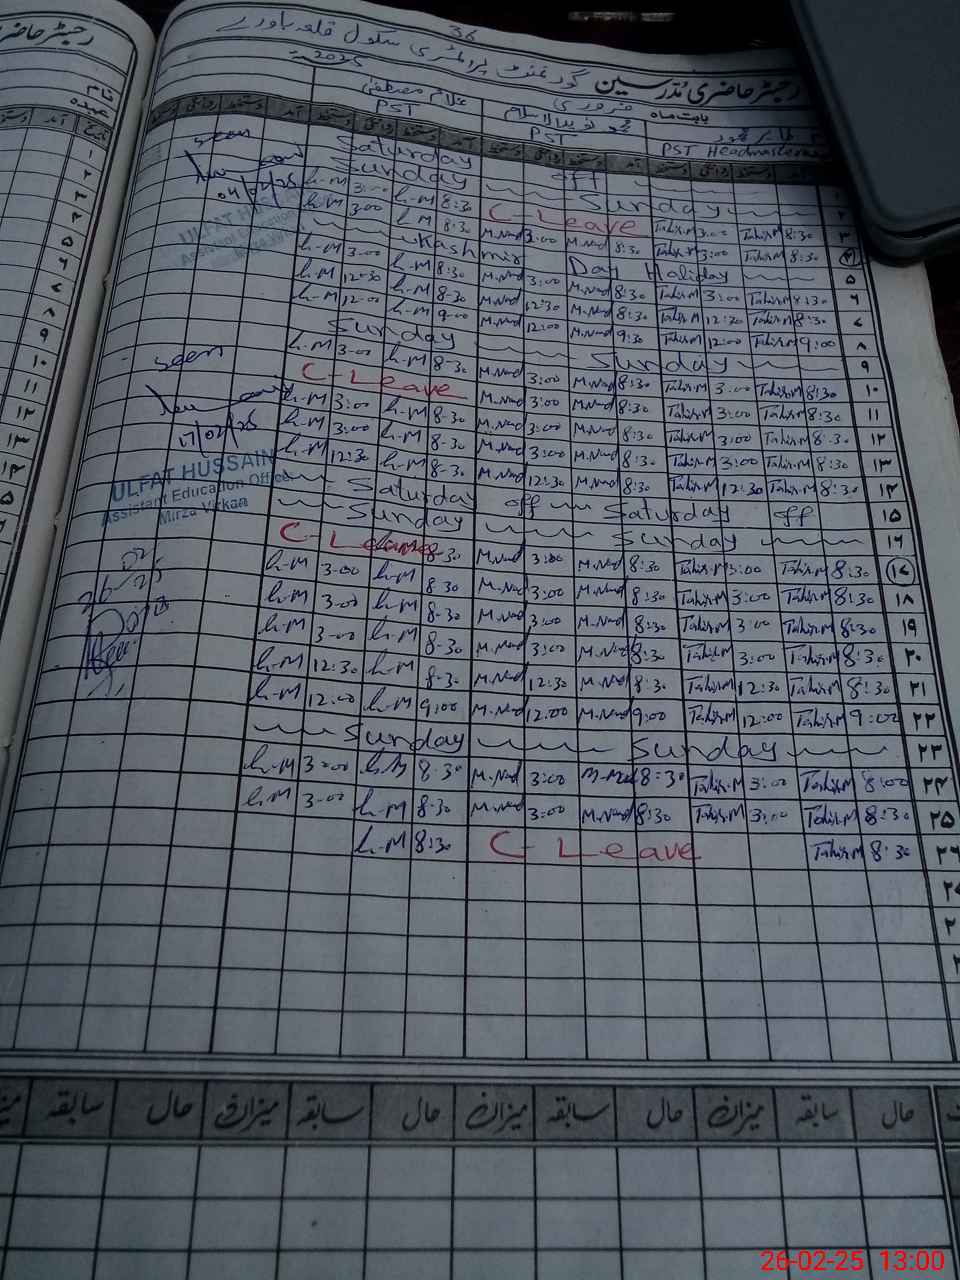 36
رجسٹر حاضری مدرسین گورنمنٹ پرائمری سکول قلعہ
بابت ماہ فروری 2025
غلام مصطفیٰ
PST
PST
PST Headmaster
آمد دستخط روانگی دستخط آمد دستخط روانگی دستخط آمد دستخط روانگی دستخط
Saturday off
۲ Sunday Sunday
۳ Tahir.M 8:30 Tahir.M 3:00 C-Leave h-M 8:30 h-M 3:00
۴ Tahir.M 8:30 Tahir.M 3:00 M.Nad 8:30 M.Nad 3:00 h-M 8:30 h-M 3:00
۵ Kashmir Day Haliday
۶ Tahir.M 8:30 Tahir.M 3:00 M.Nad 8:30 M.Nad 3:00 h-M 8:30 h-M 3:00
۷ Tahir.M 8:30 Tahir.M 12:30 M.Nad 8:30 M.Nad 12:30 h-M 8:30 h-M 12:30
۸ Tahir.M 9:00 Tahir.M 12:00 M.Nad 9:30 M.Nad 12:00 h-M 9:00 h-M 12:00
۹ Sunday Sunday
۱۰ Tahir.M 8:30 Tahir.M 3:00 M.Nad 8:30 M.Nad 3:00 h-M 8:30 h-M 3:00
۱۱ Tahir.M 8:30 Tahir.M 3:00 M.Nad 8:30 M.Nad 3:00 C-Leave
۱۲ Tahir.M 8:30 Tahir.M 3:00 M.Nad 8:30 M.Nad 3:00 h-M 8:30 h-M 3:00
۱۳ Tahir.M 8:30 Tahir.M 3:00 M.Nad 8:30 M.Nad 3:00 h-M 8:30 h-M 3:00
۱۴ Tahir.M 8:30 Tahir.M 12:30 M.Nad 8:30 M.Nad 12:30 h-M 8:30 h-M 12:30
۱۵ Saturday off Saturday off
۱۶ Sunday Sunday
۱۷ Tahir.M 8:30 Tahir.M 3:00 M.Nad 8:30 M.Nad 3:00 8:30 C-Leave
۱۸ Tahir.M 8:30 Tahir.M 3:00 M.Nad 8:30 M.Nad 3:00 h-M 8:30 h-M 3:00
۱۹ Tahir.M 8:30 Tahir.M 3:00 M.Nad 8:30 M.Nad 3:00 h-M 8:30 h-M 3:00
۲۰ Tahir.M 8:30 Tahir.M 3:00 M.Nad 8:30 M.Nad 3:00 h-M 8:30 h-M 3:00
۲۱ Tahir.M 8:30 Tahir.M 12:30 M.Nad 8:30 M.Nad 12:30 h-M 8:30 h-M 12:30
۲۲ Tahir.M 9:00 Tahir.M 12:00 M.Nad 9:00 M.Nad 12:00 h-M 9:00 h-M 12:00
۲۳ Sunday Sunday
۲۴ Tahir.M 8:00 Tahir.M 3:00 M.Nad 8:30 M.Nad 3:00 h-M 8:30 h-M 3:00
۲۵ Tahir.M 8:30 Tahir.M 3:00 M.Nad 8:30 M.Nad 3:00 h-M 8:30 h-M 3:00
۲۶ Tahir.M 8:30 C-Leave h-M 8:30
seen
04/02/25
ULFAT HUSSAIN
Assistant Education
seen
17/02/25
ULFAT HUSSAIN
Assistant Education Officer
Mirza Virkan
26-02-25
حال سابقہ میزان حال سابقہ میزان حال سابقہ میزان حال سابقہ
رجسٹر حاضری
نام
عہدہ
تاریخ آمد دستخط
26-02-25 13:00